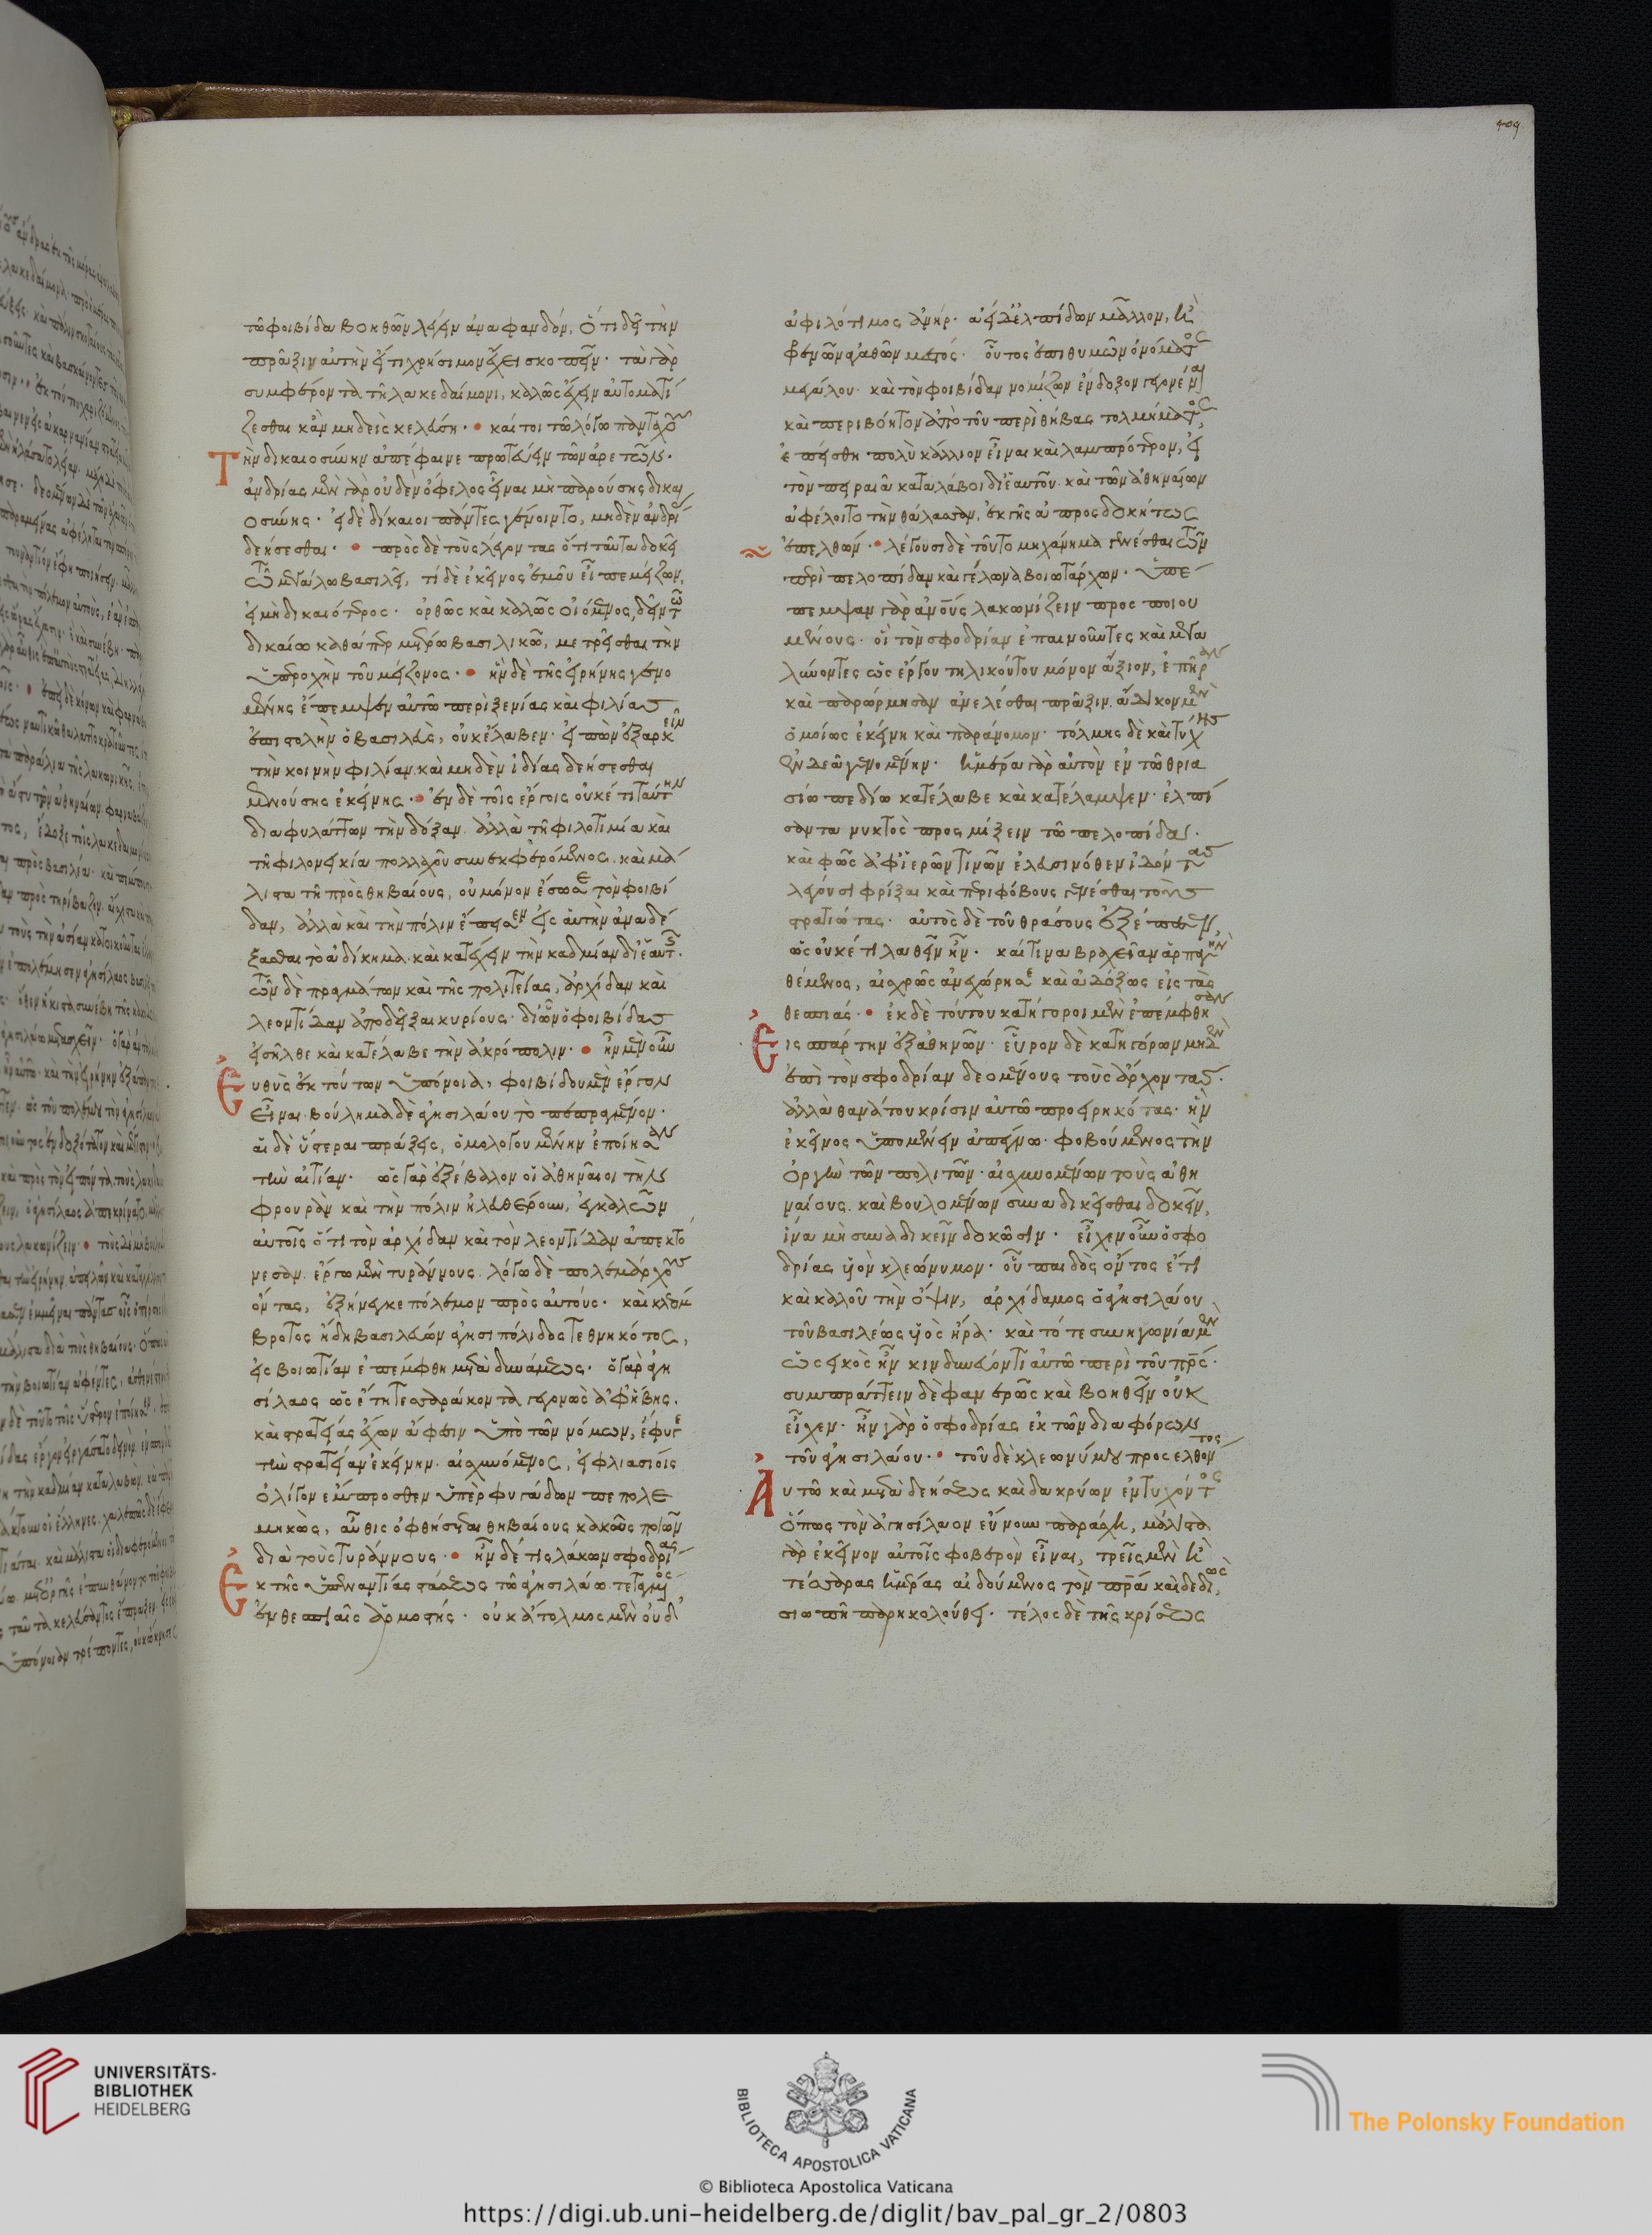 409
τῶ φοιβίδα βοηθῶν λέγειν ἀναφανδόν, ὅτι δεῖ τὴν
πρᾶξιν αὐτὴν εἴ τι χρήσιμον ἔχει σκοπεῖν· τὰ γὰρ
συμφέροντα τῆ λακεδαίμονι, καλῶς ἔχειν αὐτοματί
ζεσθαι κἂν μηδεὶς κελεύση· καίτοι τῶ λόγω πανταχοῦ
Τὴν δικαιοσύνην ἀπέφαινε πρωτεύειν τῶν ἀρετῶν·
ἀνδρίας μὲν γὰρ οὐδὲν ὄφελος εἶναι μὴ παρούσης δικαι
οσύνης· εἰ δὲ δίκαιοι πάντες γένοιντο, μηδὲν ἀνδρί
δεήσεσθαι· πρὸς δὲ τοὺς λέγοντας ὅτι ταῦτα δοκεῖ
τῶ μεγάλω βασιλεῖ, τί δὲ ἐκεῖνος ἐμοῦ εἶπε μείζων,
εἰ μὴ δικαιότερος· ὀρθῶς καὶ καλῶς οἰόμενος, δεῖν τῶ
δικαίω καθάπερ μέτρω βασιλικῶ, μετρεῖσθαι τὴν
ὑπεροχὴν τοῦ μείζονος· ἣν δὲ τῆς εἰρήνης γενο
μένης ἔπεμψεν αὐτῶ περὶ ξενίας καὶ φιλίας
ἐπιστολὴν ὁ βασιλεὺς, οὐκ ἔλαβεν· εἰπὼν ἐξαρκεῖν
τὴν κοινὴν φιλίαν καὶ μηδὲν ἰδίας δεήσεσθαι
μενούσης ἐκείνης· ἐν δὲ τοῖς ἔργοις οὐκέτι ταύτην
διαφυλάττων τὴν δόξαν ἀλλὰ τῆ φιλοτιμία καὶ
τῆ φιλονεικία πολλαχοῦ συνεκφερόμενος· καὶ μά
λιστα τῆ πρὸς θηβαίους, οὐ μόνον ἔσωσε τὸν φοιβί
δαν, ἀλλὰ καὶ τὴν πόλιν ἔπεισεν εἰς αὑτὴν ἀναδέ
ξασθαι τὸ ἀδίκημα καὶ κατέχειν τὴν καδμίαν δι ἑαυτῆς.
τῶν δὲ πραγμάτων καὶ τῆς πολιτείας, ἀρχίδαν καὶ
λεοντίδαν ἀποδεῖξαι κυρίους· δι ὧν ὁ φοιβίδας
εἰσῆλθε καὶ κατέλαβε τὴν ἀκρόπολιν· ἦν μὲν οὖν
Εὐθὺς ἐκ τούτων ὑπόνοια, φοιβίδου μὲν ἔργον
εἶναι· βούλημα δὲ ἀγησιλάου τὸ πεπραγμένον·
αἱ δὲ ὕστεραι πράξεις, ὁμολογουμένην ἐποίησαν
τὴν αἰτίαν· ὡς γὰρ ἐξέβαλον οἱ ἀθηναῖοι τὴν
φρουρὰν καὶ τὴν πόλιν ἠλευθέρουν, ἐγκαλῶν
αὐτοῖς ὅτι τὸν ἀρχίδαν καὶ τὸν λεοντίδαν ἀπεκτό
νεσαν· ἔργω μὲν τυράννους· λόγω δὲ πολεμάρχους
ὄντας, ἐξήνεγκε πόλεμον πρὸς αὐτούς· καὶ κλεόμ
βροτος ἤδη βασιλεύων ἀγησιπόλιδος τεθνηκότος,
εἰς βοιωτίαν ἐπέμφθη μετὰ δυνάμεως· ὁ γὰρ ἀγη
σίλαος ὡς ἔτη τεσσαράκοντα γεγονὼς ἀφ ἥβης.
καὶ στρατείας ἔχων ἄφεσιν ὑπὸ τῶν νόμων, ἔφυγε
τὴν στρατείαν ἐκείνην· αἰσχυνόμενος, εἰ φλιασίοις
ὀλίγον ἔμπροσθεν ὑπὲρ φυγάδων πεπολε
μηκὼς, αὖθις ὀφθήσεται θηβαίους κακοῦς ποιῶν
διὰ τοὺς τυράννους· ἦν δέ τις λάκων σφοδρίας
Ἐκ τῆς ὑπεναντίας στάσεως τῶ ἀγησιλάω τεταγμένος
ἐν θεσπιαῖς ἁρμοστής· οὐκ ἄτολμος μὲν οὐδ
ἀφιλότιμος ἀνήρ· ἀεὶ δ ἐλπίδων μᾶλλον, ἢ
φρενῶν ἀγαθῶν μεστός· οὗτος ἐπιθυμῶν ὀνόματος
μεγάλου· καὶ τὸν φοιβίδαν νομίζων ἔνδοξον γεγονέναι
καὶ περιβόητον ἀπὸ τοῦ περὶ θήβας τολμήματος,
ἐπείσθη πολὺ κάλλιον εἶναι καὶ λαμπρότερον, εἰ
τὸν πειραιᾶ καταλάβοι δι ἑαυτοῦ· καὶ τῶν ἀθηναίων
ἀφέλοιτο τὴν θάλασσαν, ἐκ γῆς ἀπροσδοκήτως
ἐπελθών· λέγουσι δὲ τοῦτο μηχάνημα γενέσθαι τῶν
περὶ πελοπίδαν καὶ γέλωνα βοιωταρχων· ὑπέ
πεμψαν γὰρ ἀνους λακωνίζειν προσποιου
μένους· οἳ τὸν σφοδρίαν ἐπαινοῦντες καὶ μεγα
λύνοντες ὡς ἔργου τηλικούτου μόνον ἄξιον, ἐπῆραν
καὶ παρώρμησαν ἀνελέσθαι πρᾶξιν ἄδικον μὲν
ὁμοίως ἐκείνη καὶ παράνομον· τόλμης δὲ καὶ τύχης
ἐνδεᾶ γενομένην· ἡμέρα γὰρ αὐτὸν ἐν τῶ θρια
σίω πεδίω κατέλαβε καὶ κατέλαμψεν· ἐλπί
σαντα νυκτὸς προςμίξειν τῶ πελοπίδας·
καὶ φῶς ἀφ ἱερῶν τινῶν ἐλευσινόθεν ἰδόντας
λέγουσι φρίξαι καὶ περιφόβους γενέσθαι τοὺς
στρατιώτας· αὐτὸς δὲ τοῦ θράσους ἐξέπεσεν,
ὡς οὐκέτι λαθεῖν ἦν· καί τινα βραχεῖαν ἁρπαγὴν
θέμενος, αἰσχρῶς ἀνεχώρησε καὶ ἀδόξως εἰς τὰς
θεσπιάς· ἐκ δὲ τούτου κατήγοροι μὲν ἐπέμφθησαν
Εἰς σπάρτην ἐξ ἀθηνῶν· εὗρον δὲ κατηγόρων μηδὲν
ἐπὶ τὸν σφοδρίαν δεομένους τοὺς ἄρχοντας·
ἀλλὰ θανάτου κρίσιν αὐτῶ προειρηκότας· ἣν
ἐκεῖνος ὑπομένειν ἀπείπω· φοβούμενος τὴν
ὀργὴν τῶν πολιτῶν· αἰσχυνομένων τοὺς ἀθη
ναίους· καὶ βουλομένων συναδικεῖσθαι δοκεῖν,
ἵνα μὴ συναδικεῖν δοκῶσιν· εἶχεν οὖν ὁ σφο
δρίας υἱὸν κλεώνυμον· οὗ παιδὸς ὄντος ἔτι
καὶ καλοῦ τὴν ὄψιν, ἀρχίδαμος ὁ ἀγησιλάου
τοῦ βασιλέως υἱὸς ἤρα· καὶ τότε συνηγωνία μὲν
ὡς εἰκὸς ἦν κινδυνεύοντι αὐτῶ περὶ τοῦ πρς·
συμπράττειν δὲ φανερῶς καὶ βοηθεῖν οὐκ
εἶχεν· ἦν γὰρ ὁ σφοδρίας ἐκ τῶν διαφόρων
τοῦ ἀγησιλάου· τοῦ δὲ κλεωνύμου προσελθόντος
Αὐτῶ καὶ μετὰ δεήσεως καὶ δακρύων ἐντυχόντος
ὅπως τὸν ἀγησίλαον εὔνουν παράσχη, μάλιστα
γὰρ ἐκεῖνον αὐτοῖς φοβερὸν εἶναι, τρεῖς μὲν ἢ
τέσσαρας ἡμέρας αἰδούμενος τὸν πρα καὶ δεδιὼς,
σιωπῆ παρηκολούθει· τέλος δὲ τῆς κρίσεως
UNIVERSITÄTS-
BIBLIOTHEK
HEIDELBERG
BIBLIOTECA APOSTOLICA VATICANA
The Polonsky Foundation
© Biblioteca Apostolica Vaticana
https://digi.ub.uni-heidelberg.de/diglit/bav_pal_gr_2/0803